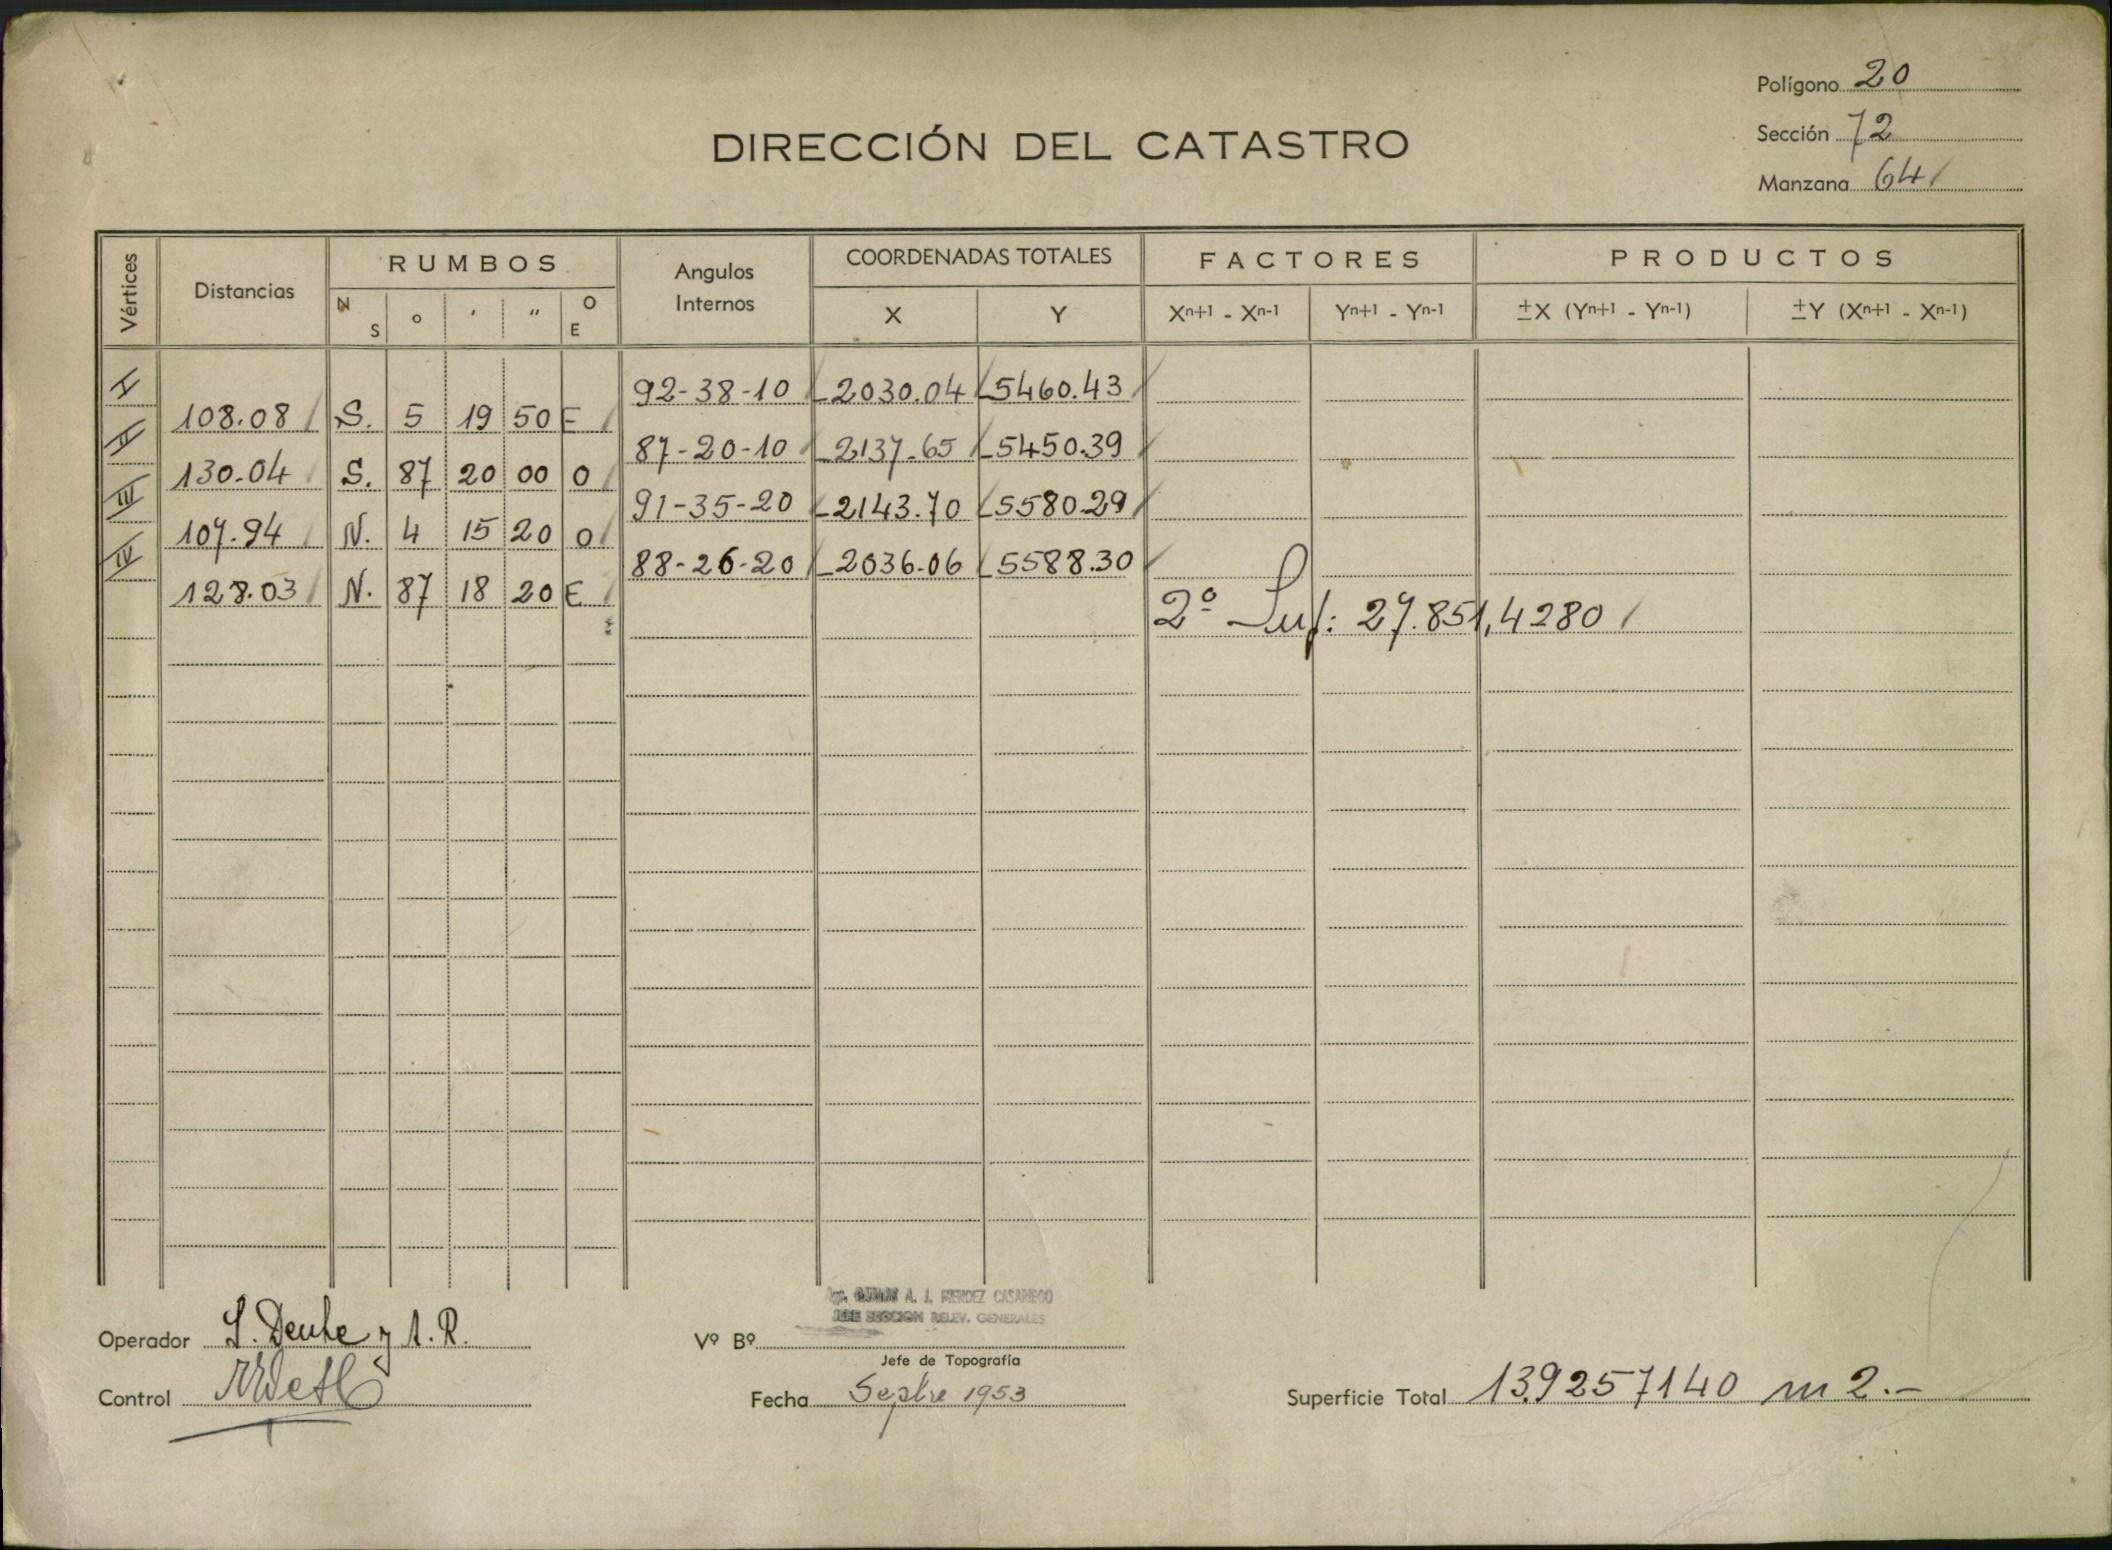 Polígono 20
DIRECCIÓN DEL CATASTRO
Sección 72
Manzana 64
Vértices Distancias RUMBOS Angulos Internos COORDENADAS TOTALES FACTORES PRODUCTOS
N S o ' " O E X Y Xn+1 - Xn-1 Yn+1 - Yn-1 ±X (Yn+1 - Yn-1) ±Y (Xn+1 - Xn-1)
I 92-38-10 -2030.04 -5460.43
108.08 S. 5 19 50 E
II 87-20-10 -2137.65 -5450.39
130.04 S. 87 20 00 O
III 91-35-20 -2143.70 -5580.29
107.94 N. 4 15 20 O
IV 88-26-20 -2036.06 -5588.30
128.03 N. 87 18 20 E
2º Sup: 27.851,4280
A. J. MENDEZ CASARIEGO
JEFE SECCION RELEV. GENERALES
Operador y A. R.
Vº Bº
Jefe de Topografía
Control
Fecha Sepbre 1953
Superficie Total 13.9257140 m2.-